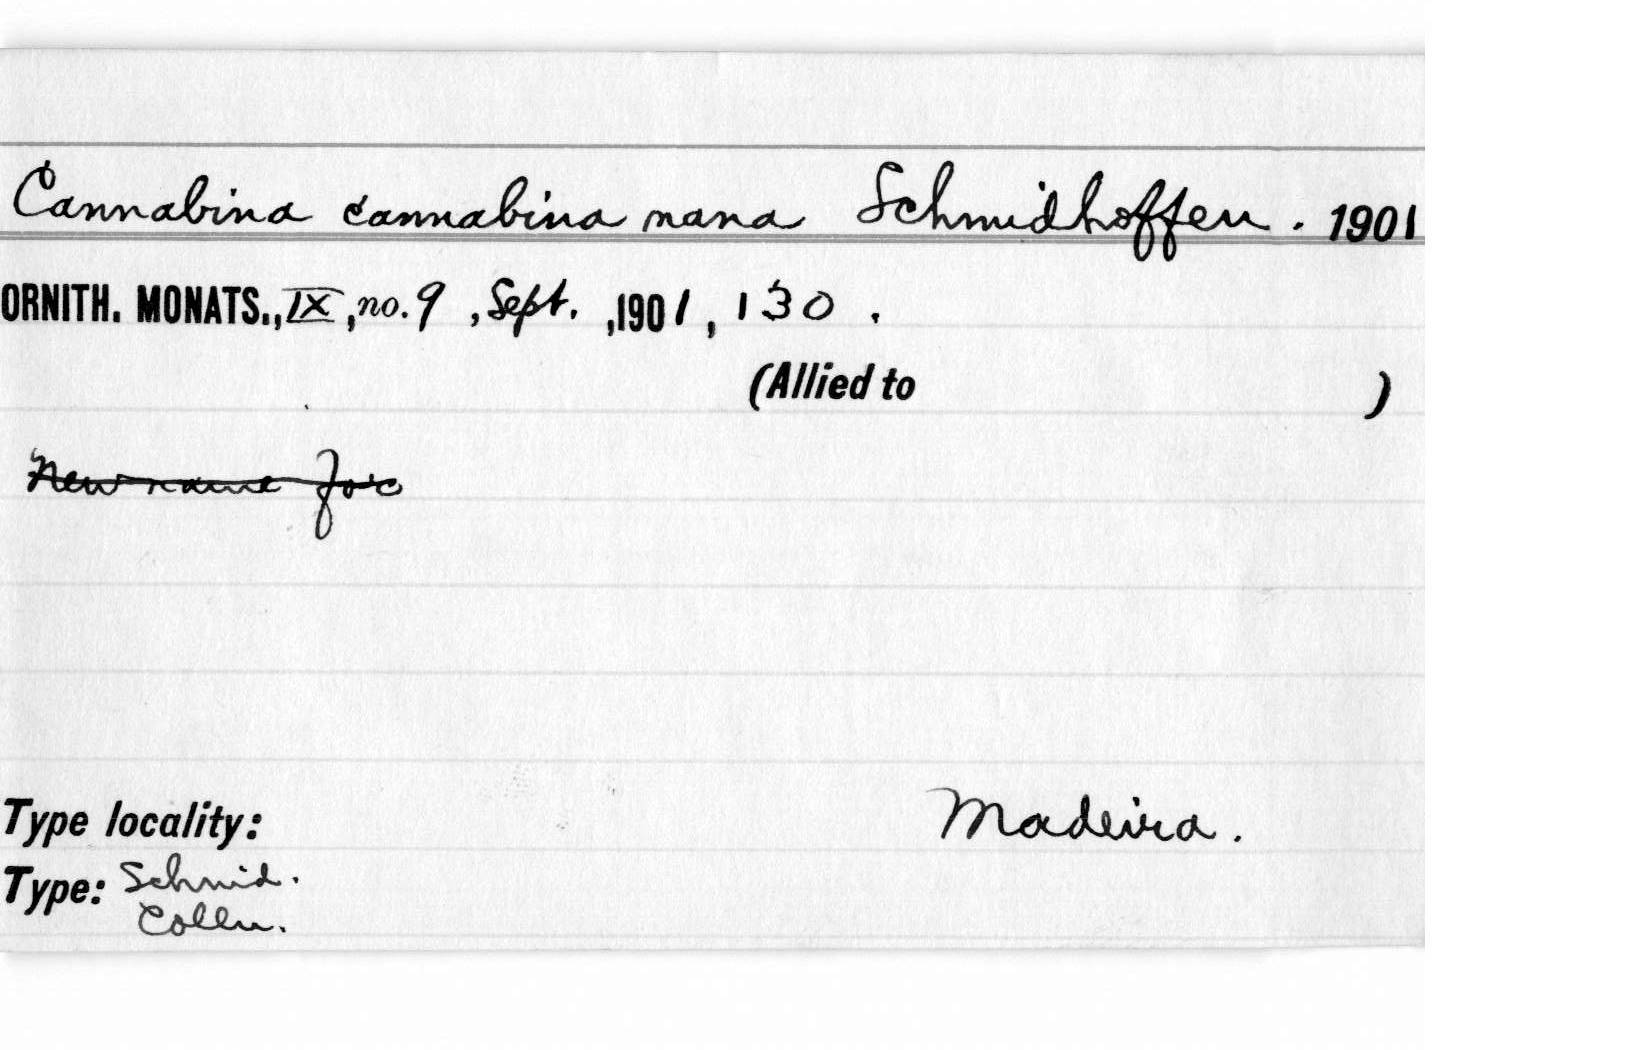 Cannabina cannabina nana Schmidhoffen. 1901
ORNITH. MONATS., IX, no. 9, Sept., 1901, 130.
(Allied to )
New name for
Type locality: Madeira.
Type: Schmid.
Colln.